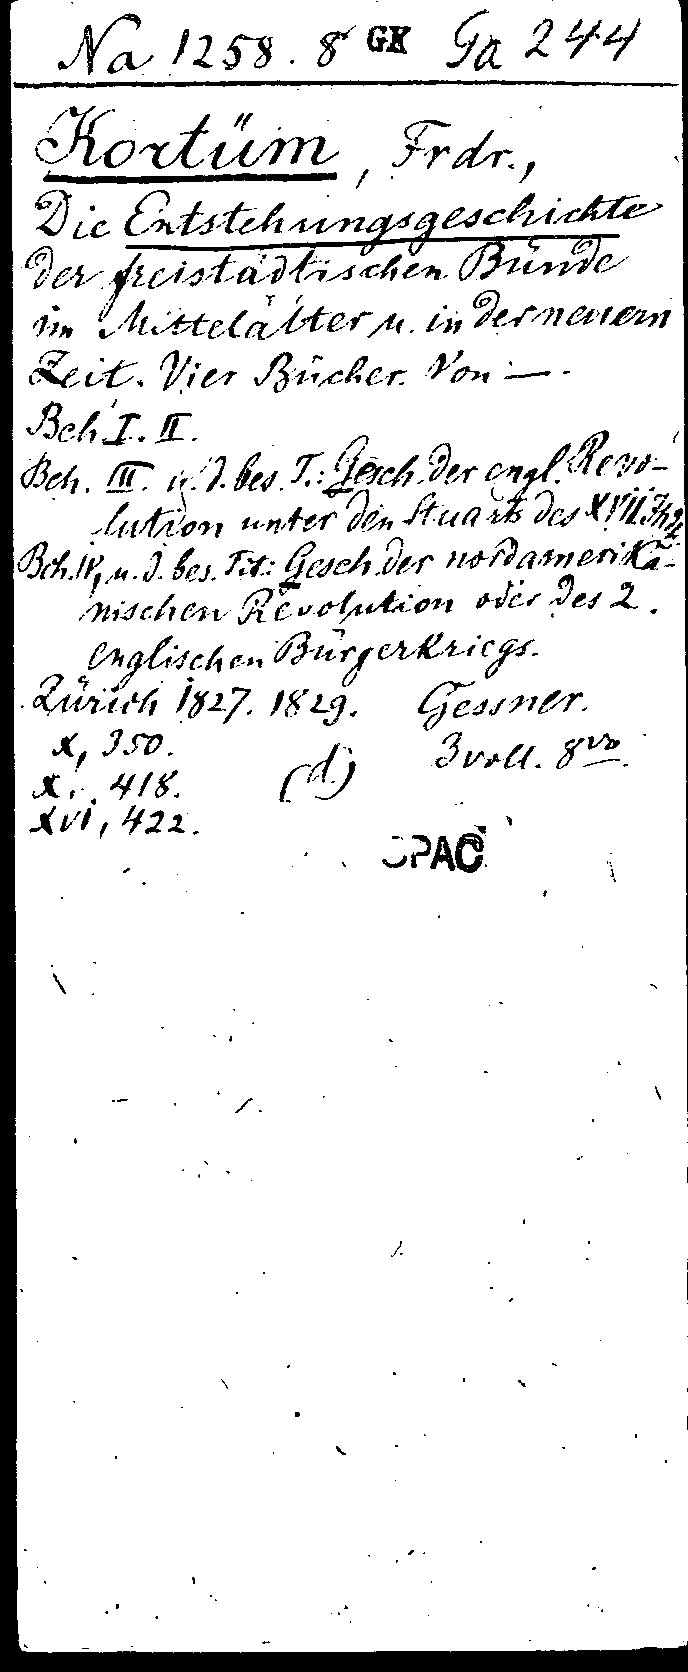 Na 1258. 8 GK Ga 244
Kortüm, Frdr.,
Die Entstehungsgeschichte
der freistädtischen Bünde
im Mittelalter u. in der neuern
Zeit. Vier Bücher. Von —.
Bch. I. II.
Bch. III. u. d. bes. T.: Gesch. der engl. Revo-
lution unter den Stuarts des XVII. Jh
Bch. IV, u. d. bes. Tit: Gesch. der nordamerika-
nischen Revolution oder des 2.
englischen Bürgerkriegs.
Zürich 1827. 1829. Gessner.
X, 350. 3 voll. 8vo.
X. 418. (d)
XVI, 422.
OPAC